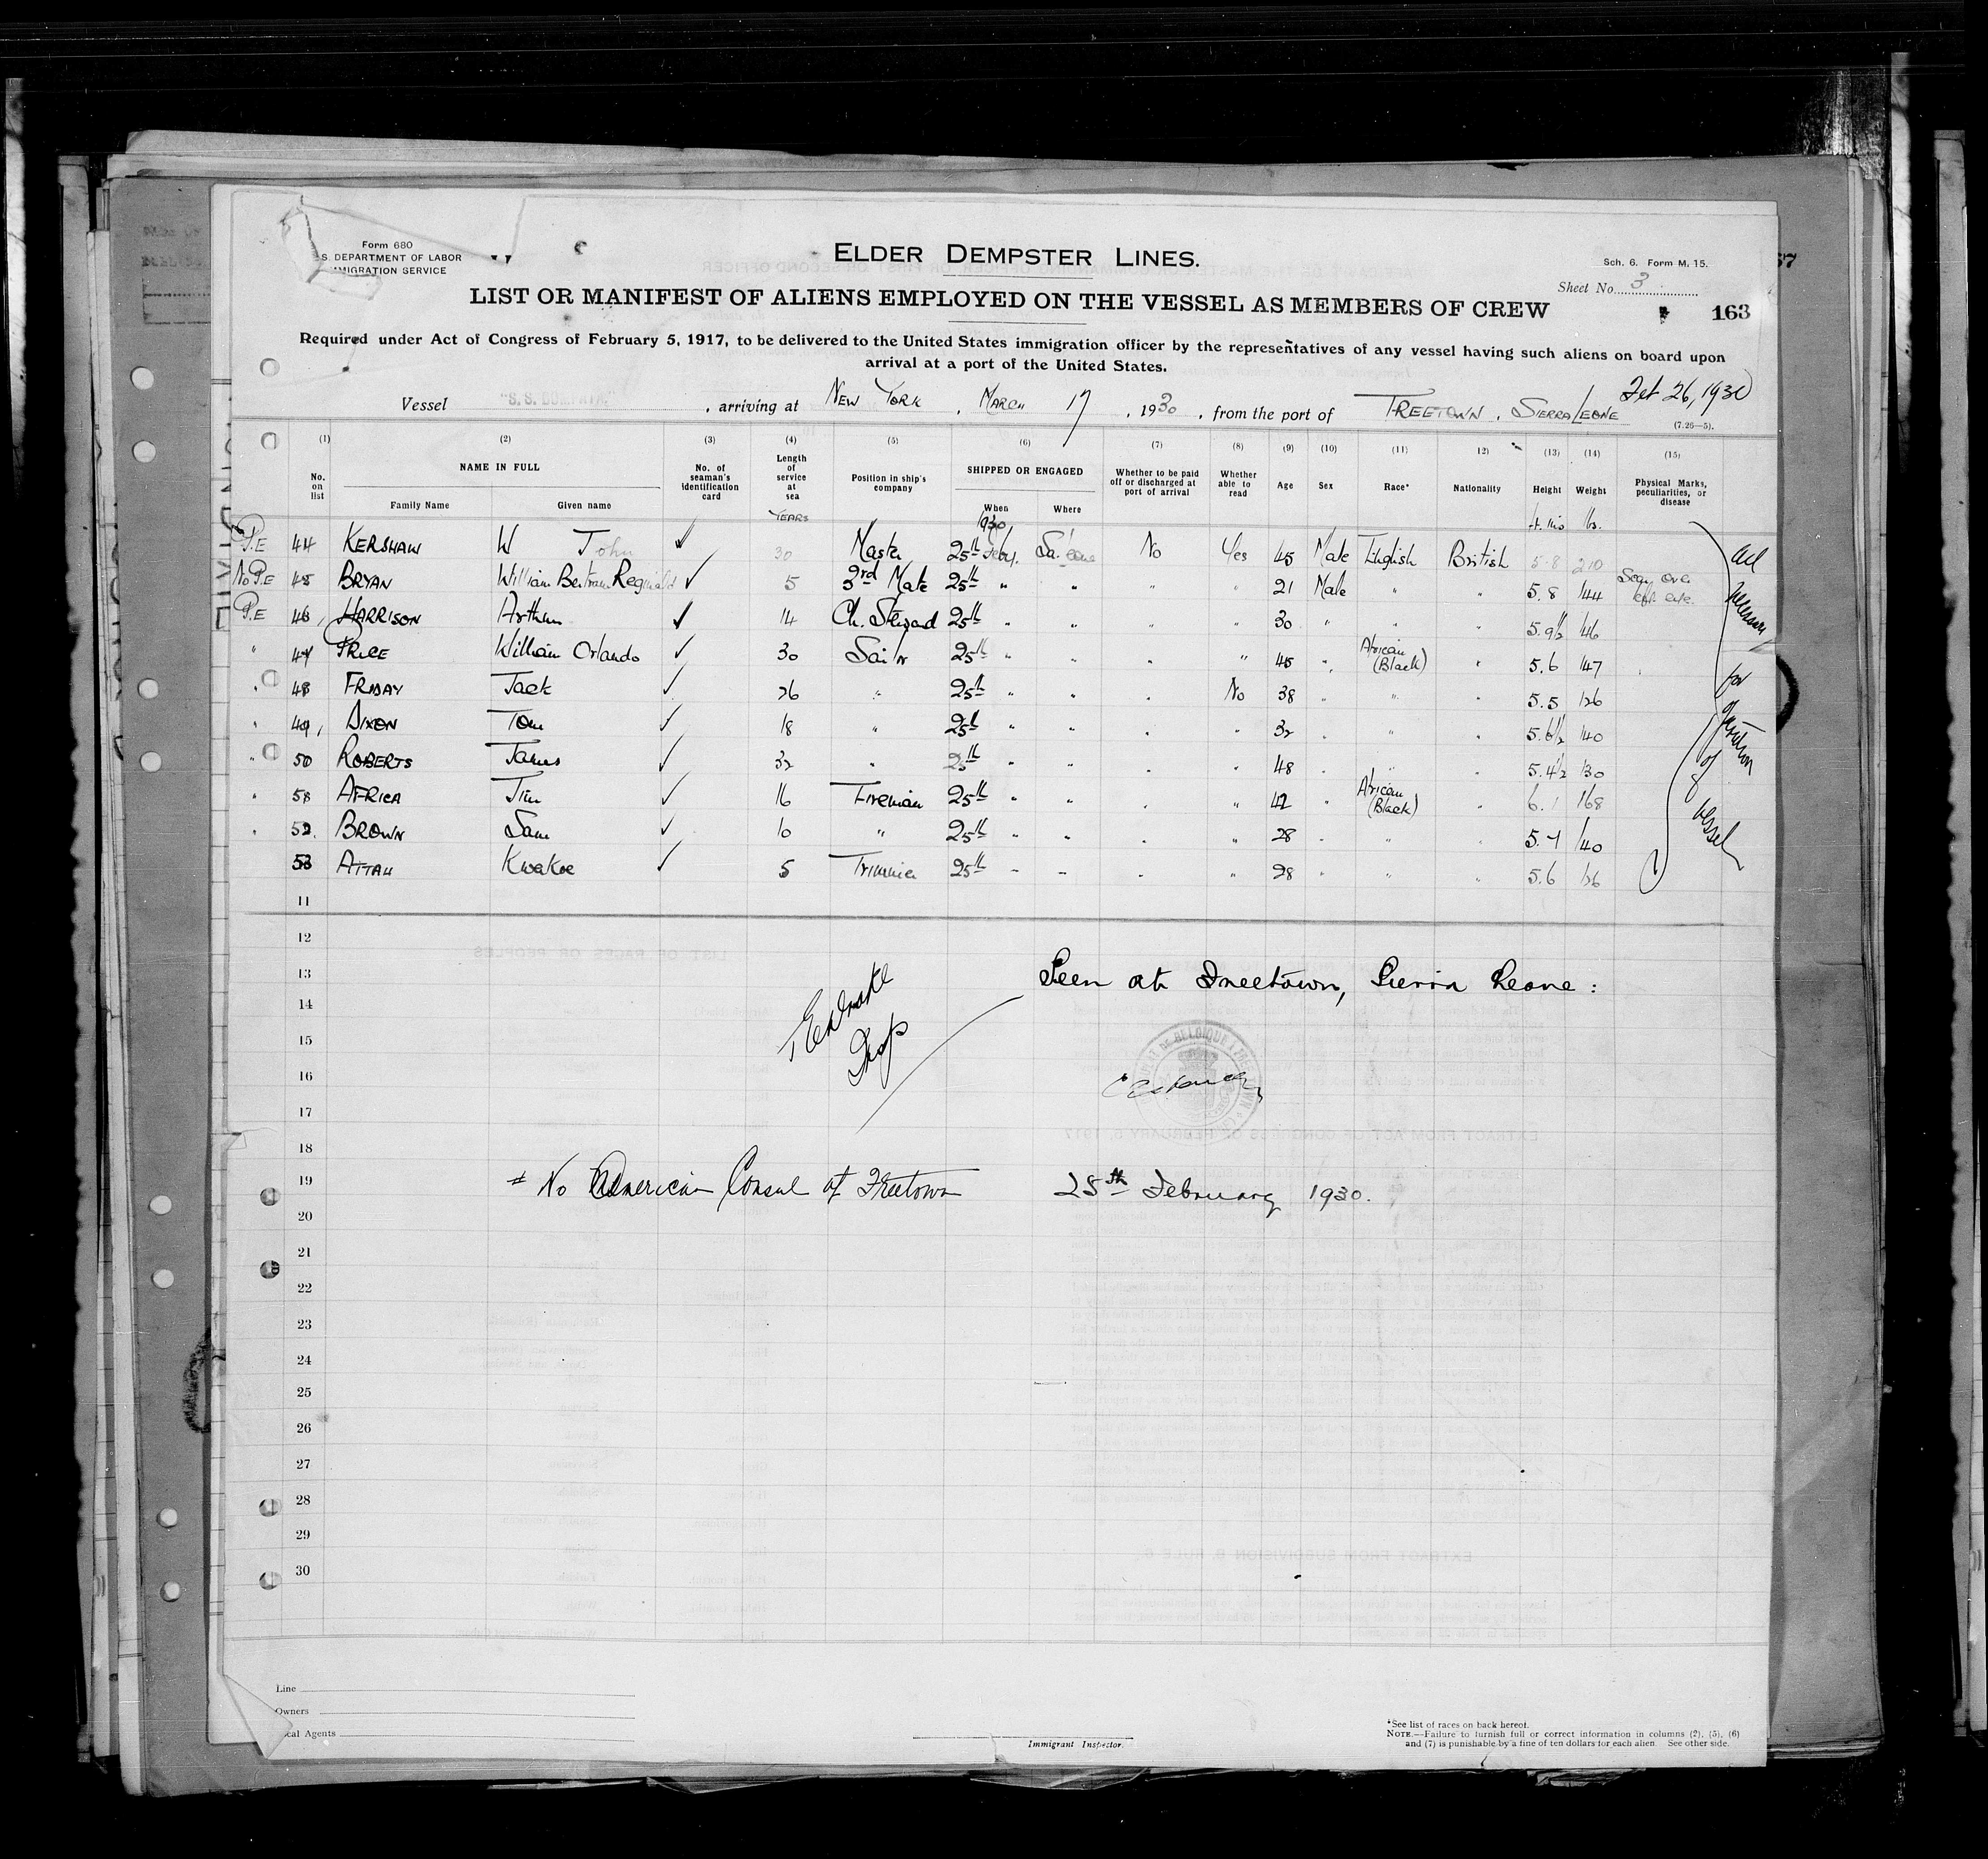 Form 680
S. DEPARTMENT OF LABOR
IMIGRATION SERVICE
ELDER DEMPSTER LINES.
Sch. 6. Form M. 15.
Sheet No. 3
LIST OR MANIFEST OF ALIENS EMPLOYED ON THE VESSEL AS MEMBERS OF CREW
163
Required under Act of Congress of February 5, 1917, to be delivered to the United States immigration officer by the representatives of any vessel having such aliens on board upon
arrival at a port of the United States.
Feb 26, 1930
Vessel , arriving at NEW YORK , MARCH 17 , 1930 , from the port of FREETOWN, SIERRA LEONE
(7.26—5).
(1) (2) (3) (4) (5) (6) (7) (8) (9) (10) (11) 12) (13) (14) (15)
No. on list NAME IN FULL Family Name Given name No. of seaman's identification card Length of service at sea Position in ship's company SHIPPED OR ENGAGED When Where Whether to be paid off or discharged at port of arrival Whether able to read Age Sex Race* Nationality Height Weight Physical Marks, peculiarities, or disease
YEARS 1930 ft. ins lbs.
P.E 44 KERSHAW W John ✓ 30 Master 25th Feby. Sa. Leone No Yes 45 Male English British 5.8 210
No P.E 45 BRYAN William Bertram Reginald ✓ 5 3rd Mate 25th " " " " 21 Male " " 5.8 144 Scar over left eye.
P.E 46 HARRISON Arthur ✓ 14 Ch. Steward 25th " " " " 30 " " " 5.9½ 146
" 47 PRICE William Orlando ✓ 30 Sailor 25th " " " " 45 " African (Black) " 5.6 147
" 48 FRIDAY Jack ✓ 26 " 25th " " " No 38 " " " 5.5 126
" 49 DIXON Tom ✓ 18 " 25th " " " " 32 " " " 5.6½ 140
" 50 ROBERTS James ✓ 32 " 25th " " " " 48 " " " 5.4½ 130
" 51 AFRICA Jim ✓ 16 Fireman 25th " " " " 42 " African (Black) " 6.1 168
" 52 BROWN Sam ✓ 10 " 25th " " " " 28 " " " 140
53 ATTAH Kwakoe ✓ 5 Trimmer 25th " " " " 28 " " " 5.6 136
All necessary for operation of vessel
11
12
13
Seen at Freetown, Sierra Leone:
14
15
16
17
18
19
# No American Consul at Freetown 25th February 1930.
20
21
22
23
24
25
26
27
28
29
30
Line
Owners
cal Agents
Immigrant Inspector.
*See list of races on back hereof.
NOTE.—Failure to furnish full or correct information in columns (2), (5), (6)
and (7) is punishable by a fine of ten dollars for each alien. See other side.